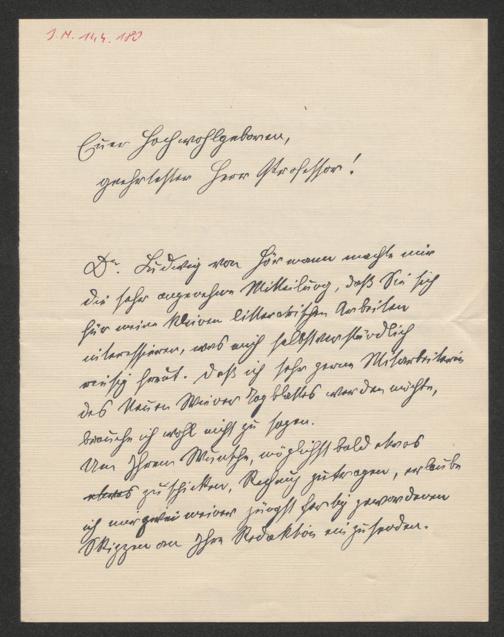 J.N. 144.180
Euer Hochwohlgeboren,
geehrtester Herr Professor!
Dr. Ludwig von Hörmann machte mir
die sehr angenehme Mitteilung, daß Sie sich
für meine kleinen litterarischen Arbeiten
interessieren, was mich selbstverständlich
riesig freut. Daß ich sehr gerne Mitarbeiterin
des Neuen Wiener Tagblattes werden möchte,
brauche ich wohl nicht zu sagen.
Um Ihrem Wunsche, möglichst bald etwas
etwas zu schicken, Rechnung zu tragen, erlaube
ich mir zwei meiner jüngst fertig gewordenen
Skizzen an Ihre Redaktion einzusenden.